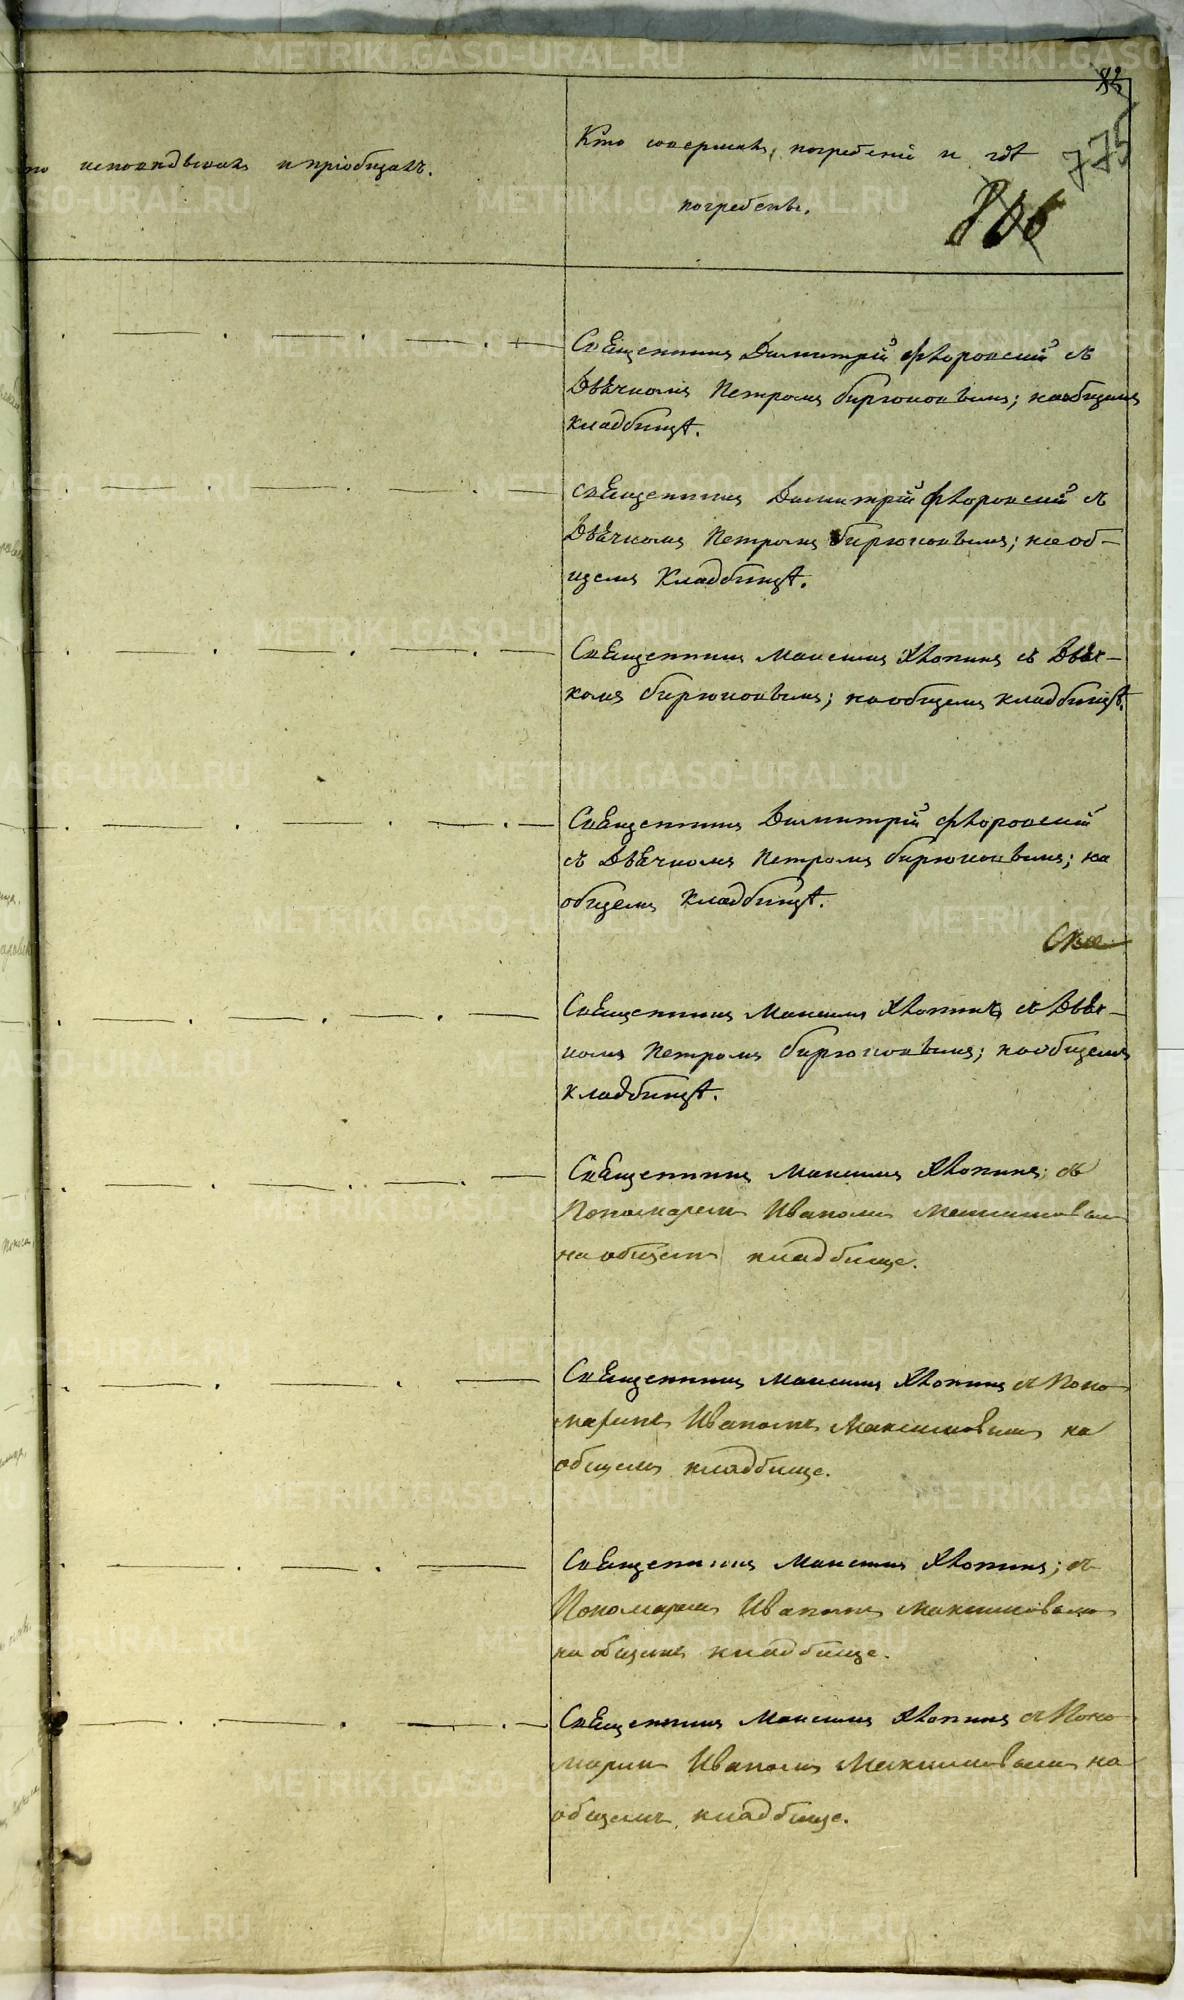 775
исповѣдывалъ и пріобщалъ.
Кто совершалъ погребеніе и гдѣ
погребены.
Священникъ Димитрій Флоровскій съ
Дьячкомъ Петромъ Бирюковымъ; на общемъ
кладбищѣ.
Священникъ Димитрій Флоровскій съ
Дьячкомъ Петромъ Бирюковымъ; на об-
щемъ Кладбищѣ.
Священникъ Максимъ Хлопинъ съ Дьяч-
комъ Бирюковымъ; на общемъ кладбищѣ.
Священникъ Димитрій Флоровскій
съ Дьячкомъ Петромъ Бирюковымъ; на
общемъ Кладбищѣ.
Священникъ Максимъ Хлопинъ съ Дьяч-
комъ Петромъ Бирюковымъ; на общемъ
кладбищѣ.
Священникъ Максимъ Хлопинъ; съ
Пономаремъ Иваномъ Максимовымъ
на общемъ кладбище.
Священникъ Максимъ Хлопинъ съ Поно
маремъ Иваномъ Максимовымъ на
общемъ кладбище.
Священникъ Максимъ Хлопинъ; съ
Пономаремъ Иваномъ Максимовымъ
на общемъ кладбище.
Священникъ Максимъ Хлопинъ съ Поно
маремъ Иваномъ Максимовымъ на
общемъ кладбище.
METRIKI.GASO-URAL.RU